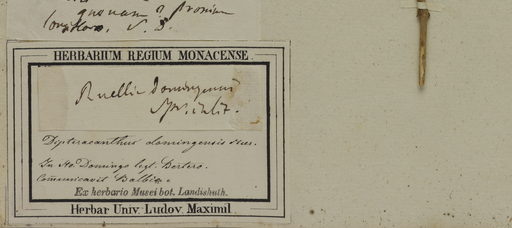 HERBARIUM REGIUM MONACENSE
Ruellia domingensis
Spr. in litt.
Dipteracanthus domingensis Nees.
In Sto Domingo legt. Bertero.
Communicavit Balbis.
Ex herbario Musei bot. Landishuth.
Herbar Univ. Ludov. Maximil.